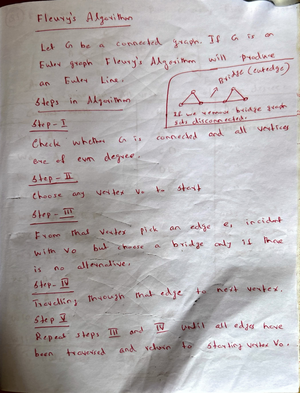 Fleury's Algorithm
Let G be a connected graph. If G is an
Euler graph Fleury's Algorithm will produce
an Euler Line.
Bridge (cutedge)
If we remove bridge graph
gets disconnected.
Steps in Algorithm
Step - I
Check whether G is connected and all vertices
are of even degree.
Step - II
Choose any vertex V₀ to start
Step - III
From that vertex pick an edge e₁ incident
with V₀ but choose a bridge only if there
is no alternative.
Step - IV
Travelling through that edge to next vertex.
Step V
Repeat steps III and IV until all edges have
been traversed and return to starting vertex V₀.